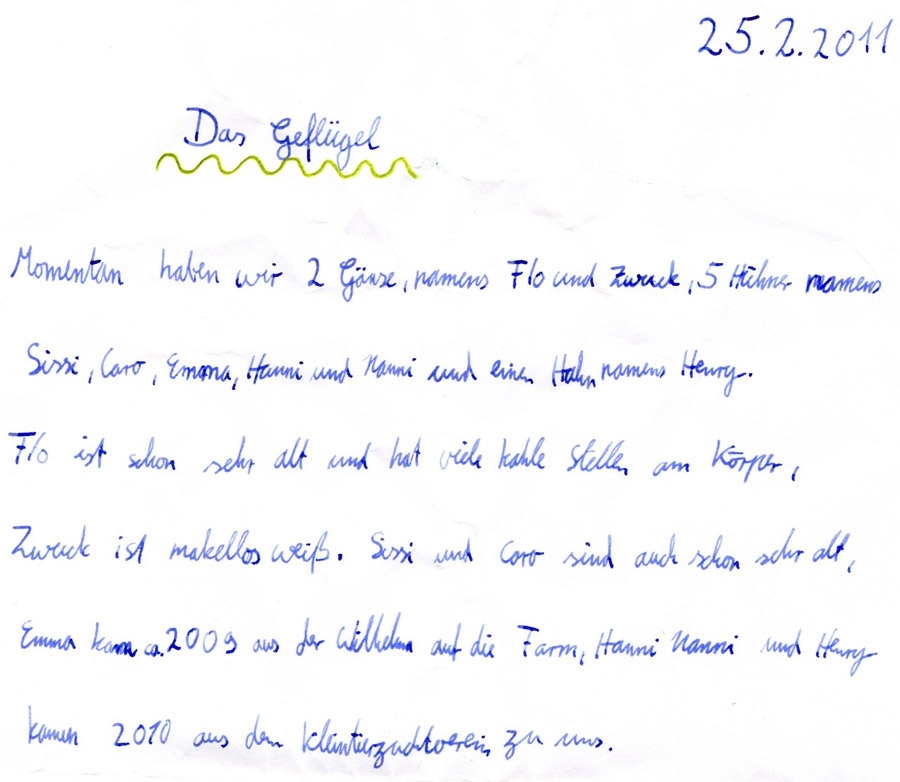 25.2.2011
Das Geflügel
Momentan haben wir 2 Gänse, namens Flo und Zweck, 5 Hühner namens
Sissi, Caro, Emma, Hanni und Nanni und einen Hahn namens Henry.
Flo ist schon sehr alt und hat viele kahle Stellen am Körper,
Zweck ist makellos weiß. Sissi und Caro sind auch schon sehr alt,
Emma kam ca. 2009 aus der Wilhelma auf die Farm, Hanni Nanni und Henry
kamen 2010 aus dem Kleintierzuchtverein zu uns.